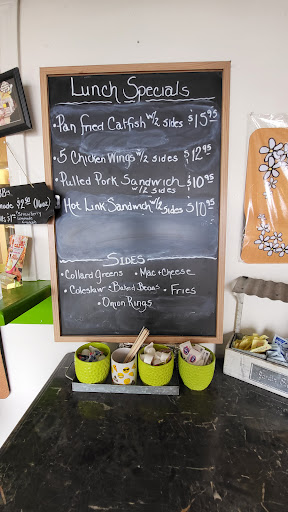 Lunch Specials
• Pan fried Catfish w/2 sides $15.95
• 5 Chicken Wings w/2 sides $12.95
• Pulled Pork Sandwich w/2 sides $10.95
• Hot Link Sandwich w/2 sides $10.95
Sides
• Collard Greens • Mac + Cheese
• Coleslaw • Baked Beans • Fries
• Onion Rings